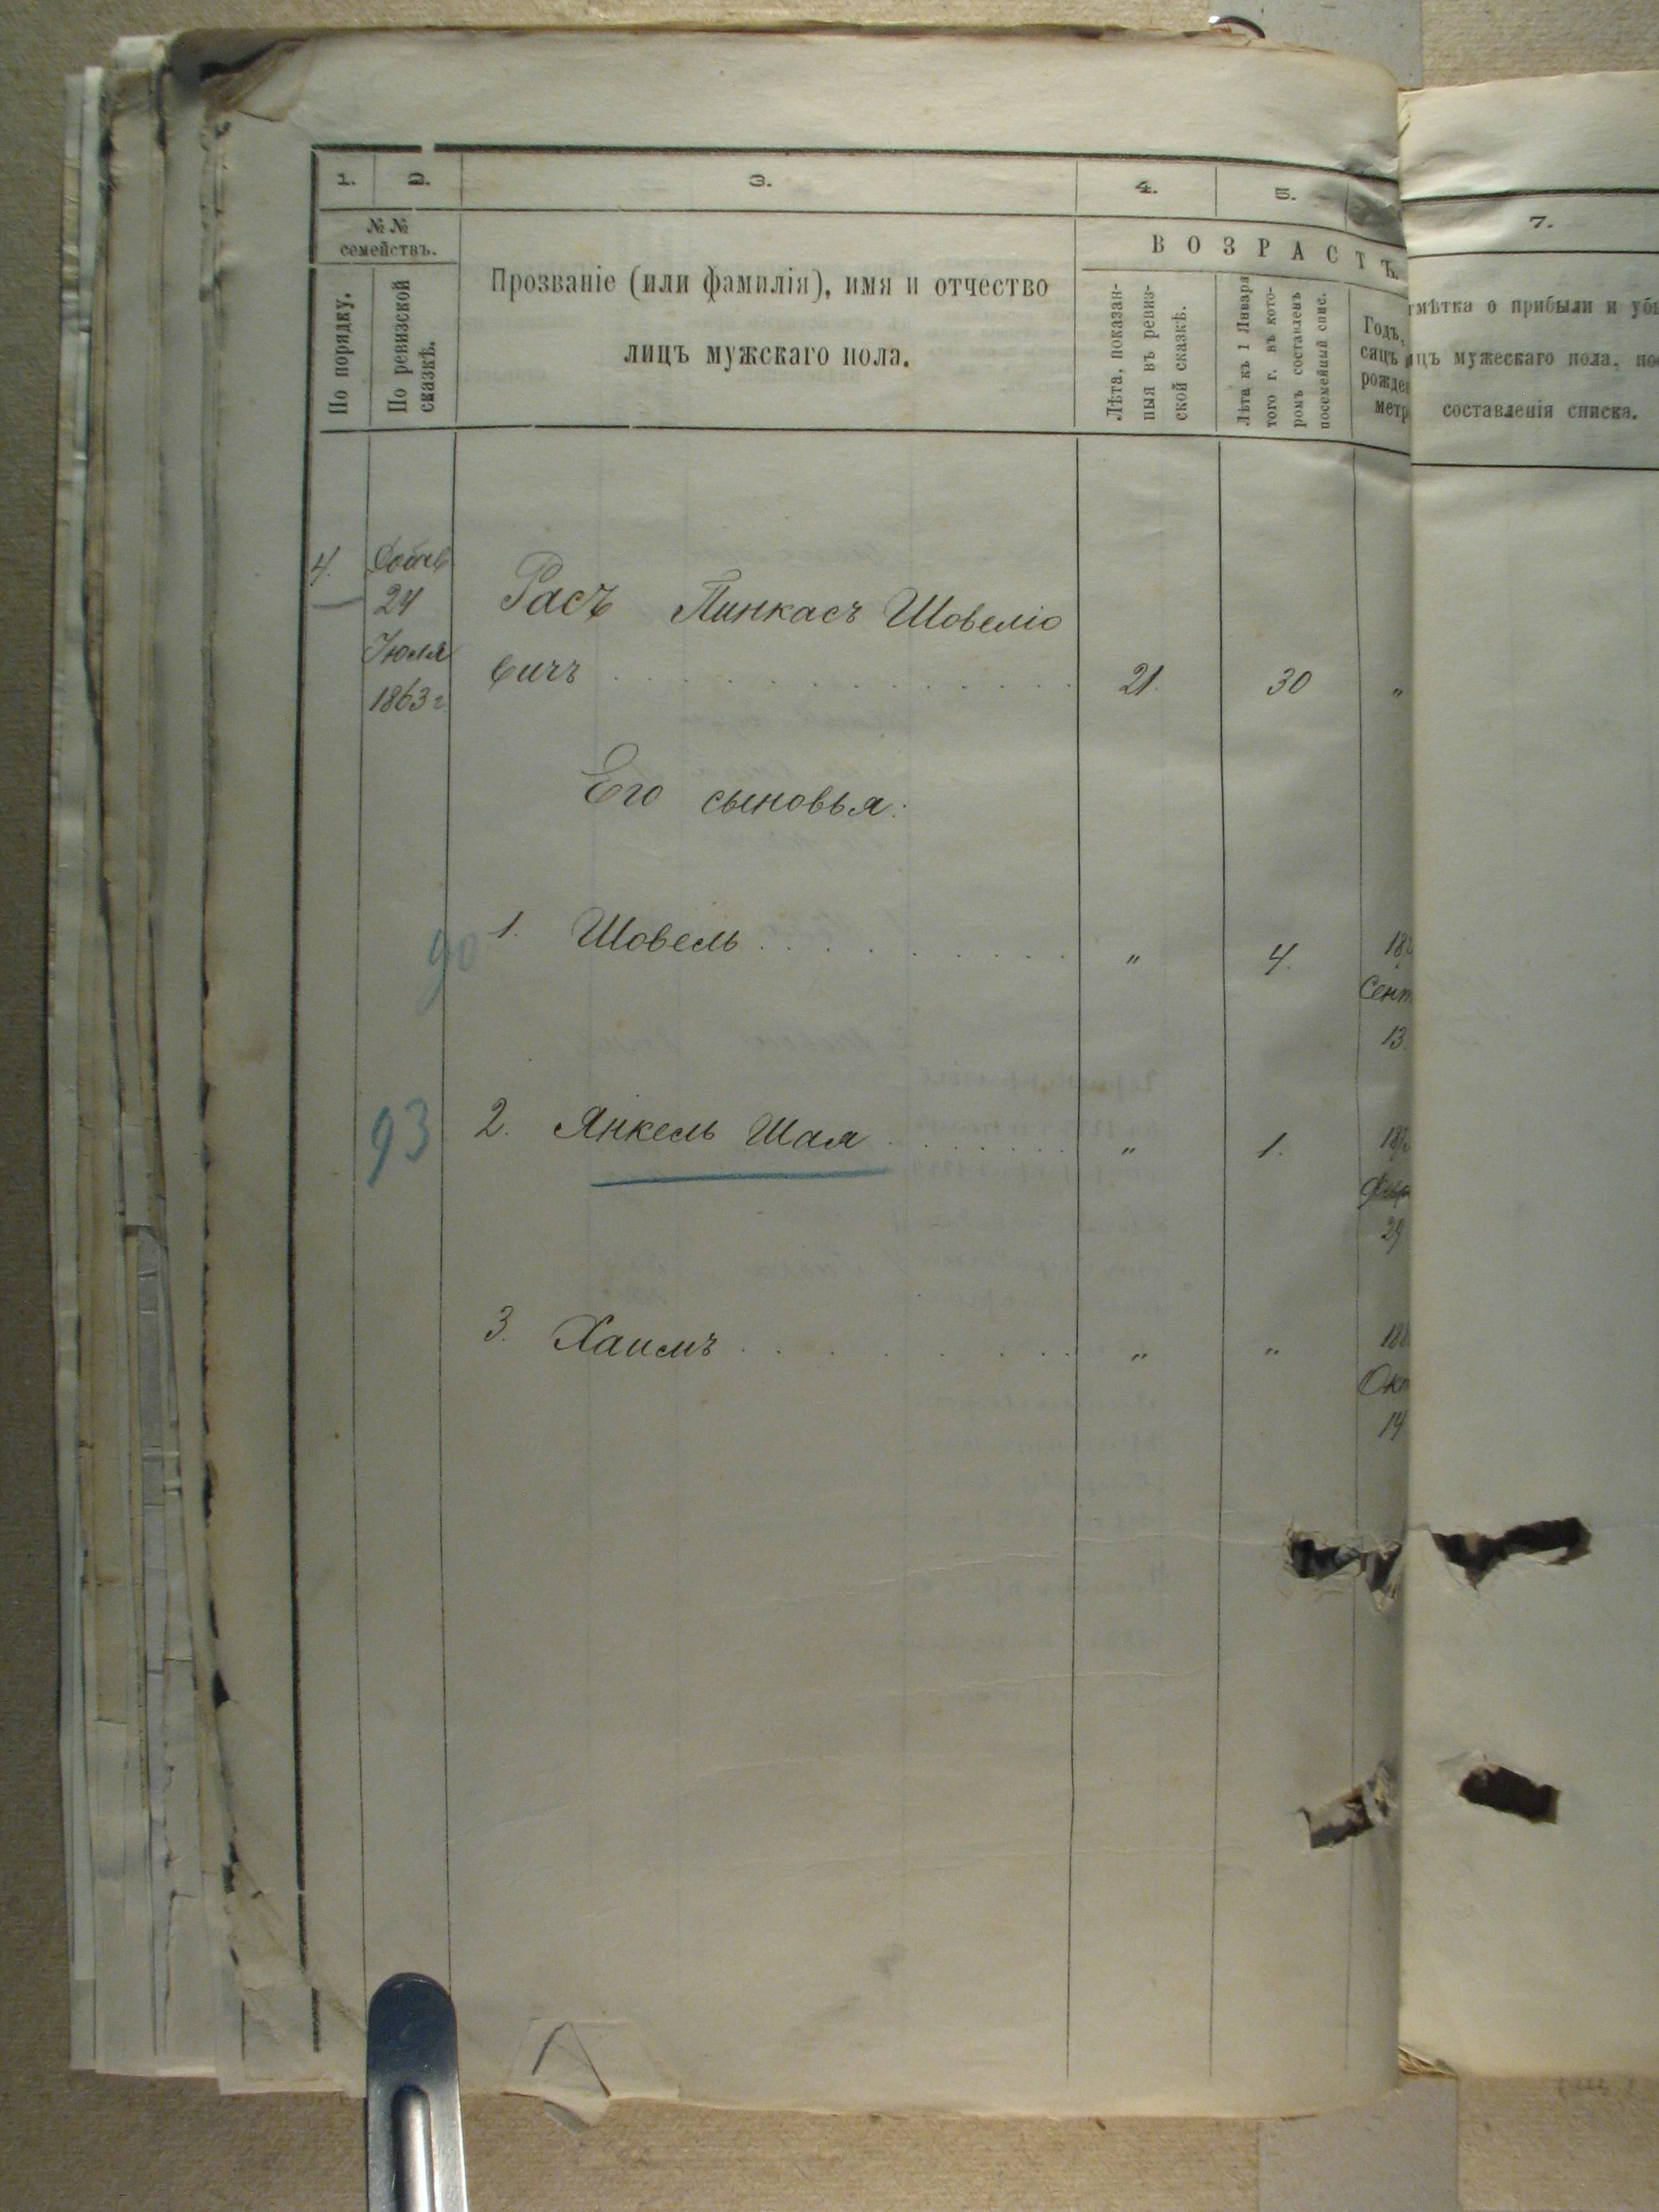 1. 2. 3. 4. 5.
7.
№№ семействъ.
По порядку.
По ревизской сказкѣ.
Прозваніе (или фамилія), имя и отчество
лицъ мужскаго пола.
ВОЗРАСТЪ.
Лѣта, показан-
ныя въ ревиз-
ской сказкѣ.
Лѣта къ 1 Января
того г. въ кото-
ромъ составленъ
посемейный спис.
Годъ,
сяцъ
рожде
метр
тмѣтка о прибыли и убы
ицъ мужескаго пола, пос
составленія списка.
4.
24
Іюля
1863 г.
Расъ Пинкасъ Шовеліо
вичъ 21. 30 „
Его сыновья:
90 1. Шовель „ 4. 18
Сент
13.
93 2. Янкель Шая „ 1. 18
Февр
29
3. Хаимъ „ „ 18
Окт
14